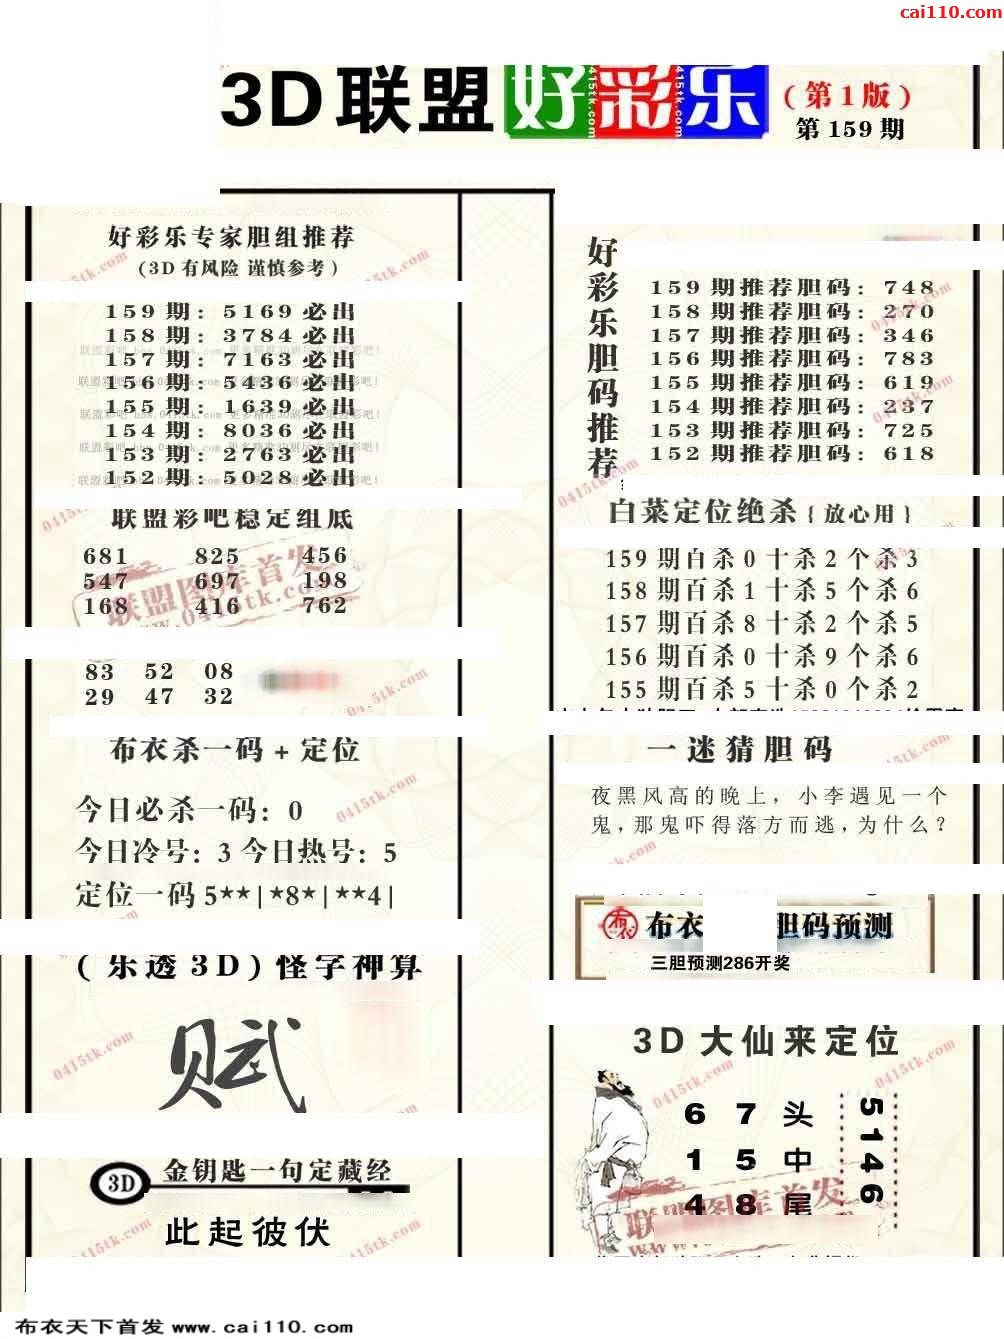 cai110.com
3D联盟好彩乐
(第1版)
第159期
好彩乐专家胆组推荐
(3D有风险 谨慎参考)
159期: 5169必出
158期: 3784必出
157期: 7163必出
156期: 5436必出
155期: 1639必出
154期: 8036必出
153期: 2763必出
152期: 5028必出
联盟彩吧稳定组底
681 825 456
547 697 198
168 416 762
83 52 08
29 47 32
布衣杀一码+定位
今日必杀一码: 0
今日冷号: 3 今日热号: 5
定位一码 5**|*8*|**4|
(乐透3D)怪字神算
赋
3D 金钥匙一句定藏经
此起彼伏
好彩乐胆码推荐
159期推荐胆码: 748
158期推荐胆码: 270
157期推荐胆码: 346
156期推荐胆码: 783
155期推荐胆码: 619
154期推荐胆码: 237
153期推荐胆码: 725
152期推荐胆码: 618
白菜定位绝杀{放心用}
159期百杀0十杀2个杀3
158期百杀1十杀5个杀6
157期百杀8十杀2个杀5
156期百杀0十杀9个杀6
155期百杀5十杀0个杀2
一迷猜胆码
夜黑风高的晚上,小李遇见一个
鬼,那鬼吓得落方而逃,为什么?
布衣 胆码预测
三胆预测286开奖
3D大仙来定位
6 7 头
1 5 中
4 8 尾
5146
联盟图库首发
0415tk.com
布衣天下首发 www.cai110.com